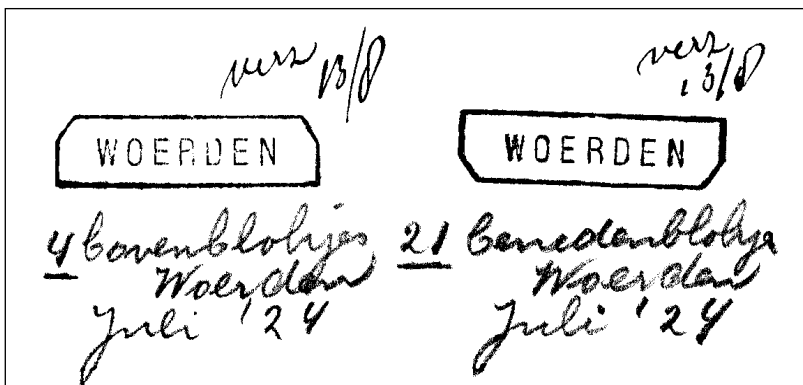 verz 13/8
WOERDEN
4 bovenblokjes
Woerden
Juli '24
verz
13/8
WOERDEN
21 benedenblokje
Woerden
Juli '24